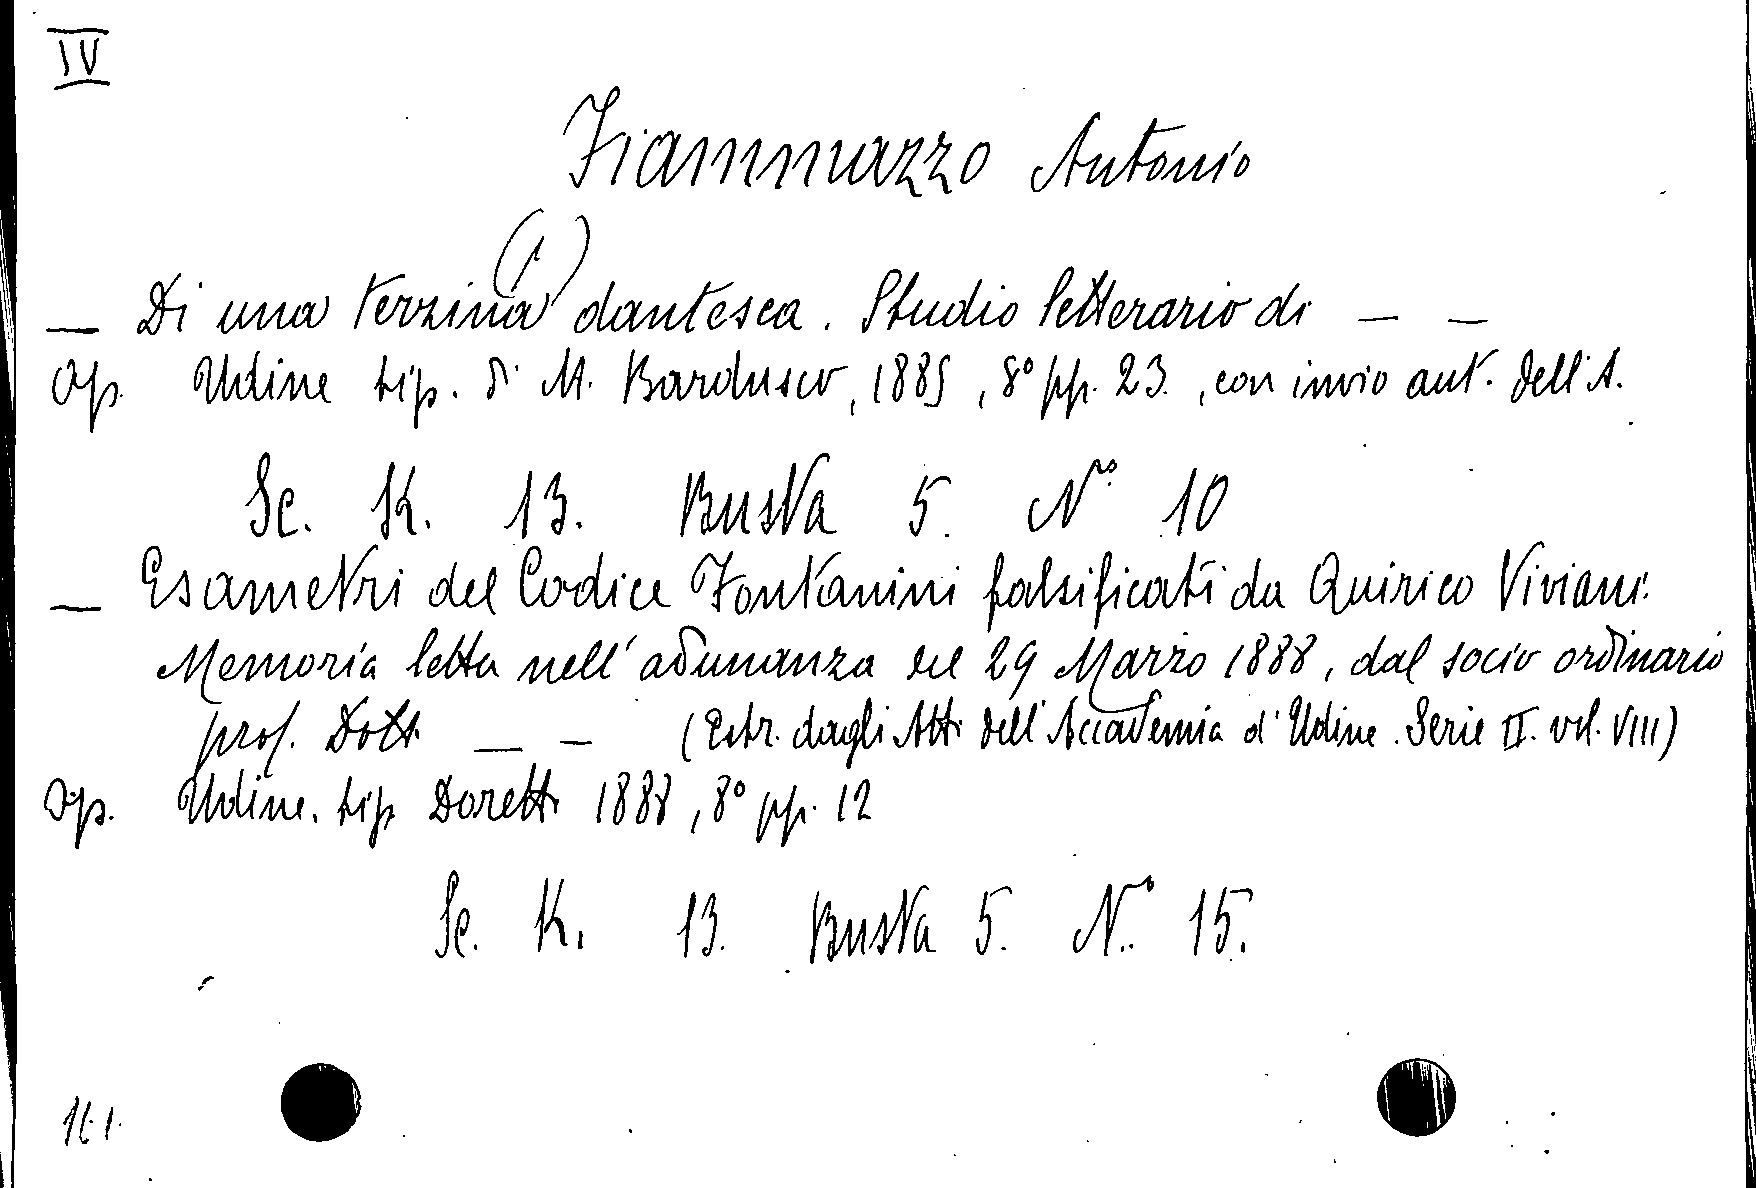 IV
Fiammazzo Antonio
(1)
— Di una terzina dantesca. Studio letterario di — —
Op. Udine tip. di M. Bardusco, 1885, 8° pp. 23., con invio aut. dell'A.
Sc. K. 13. Busta 5. N° 10
— Esametri del Codice Fontanini falsificati da Quirico Viviani.
Memoria letta nell'adunanza del 29 Marzo 1888, dal socio ordinario
prof. Dott. — — (Estr. dagli Atti dell'Accademia d'Udine. Serie II. vol. VIII)
Op. Udine. tip Doretti 1888, 8° pp. 12
Sc. K. 13. Busta 5. N.° 15.